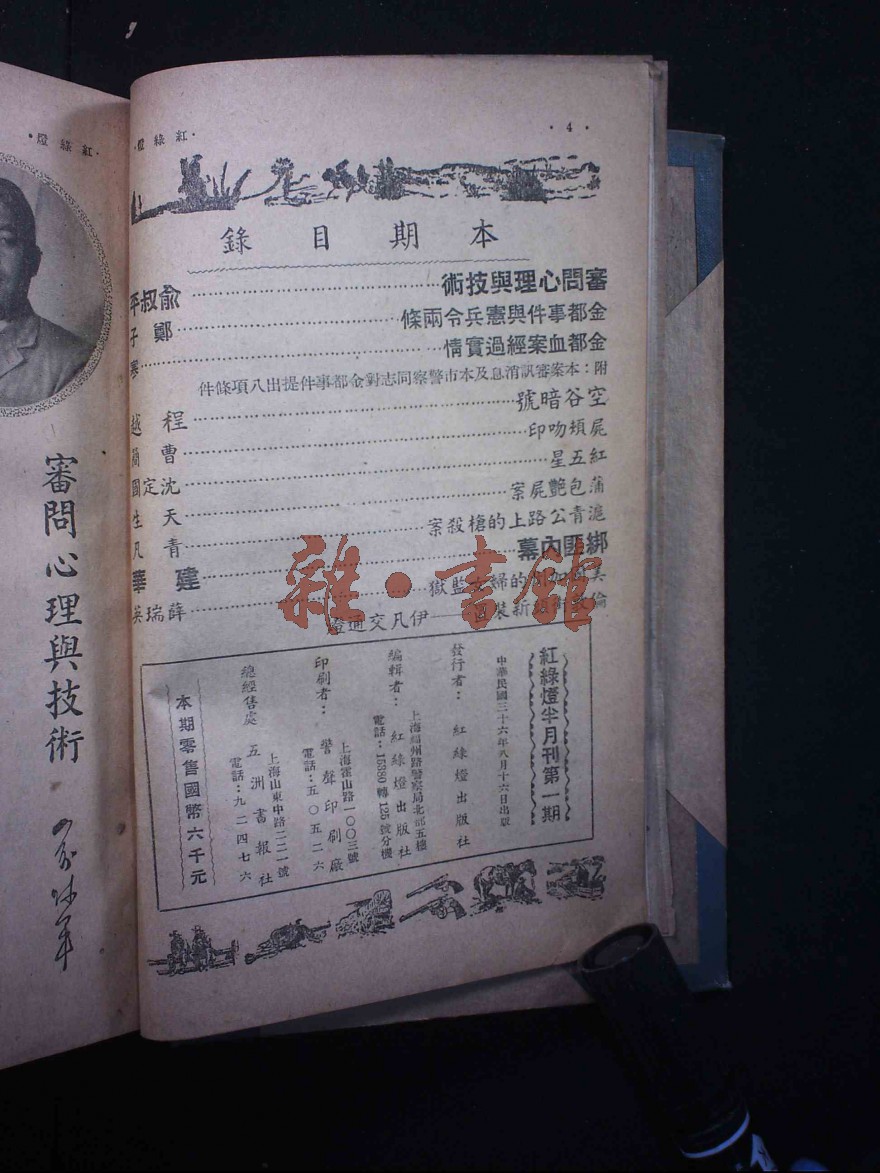 ·4·
·紅綠燈·
本期目錄
審問心理與技術……俞叔平
金都事件與憲兵令兩條……鄭子
金都血案經過實情……寒
附：本案審訊消息及本市警察同志對金都事件提出八項條件
空谷暗號……程越
屍頰吻印……曹
紅五星……沈定國
蒲包艷屍案……天生
滬青公路上的槍殺案……青凡
綁匪內幕……建華
的婦女監獄……薛瑞英
倫 新裝 ——伊凡交通燈
紅綠燈半月刊第一期
中華民國三十六年八月十六日出版
發行者：紅綠燈出版社
編輯者：紅綠燈出版社
上海福州路警察局北部五樓
電話：15380轉125號分機
印刷者：警聲印刷廠
上海霍山路一〇〇三號
電話：五〇五二六
總經售處 五洲書報社
上海山東中路二二一號
電話：九二四七六
本期零售國幣六千元
·紅綠燈·
審問心理與技術
雜·書館